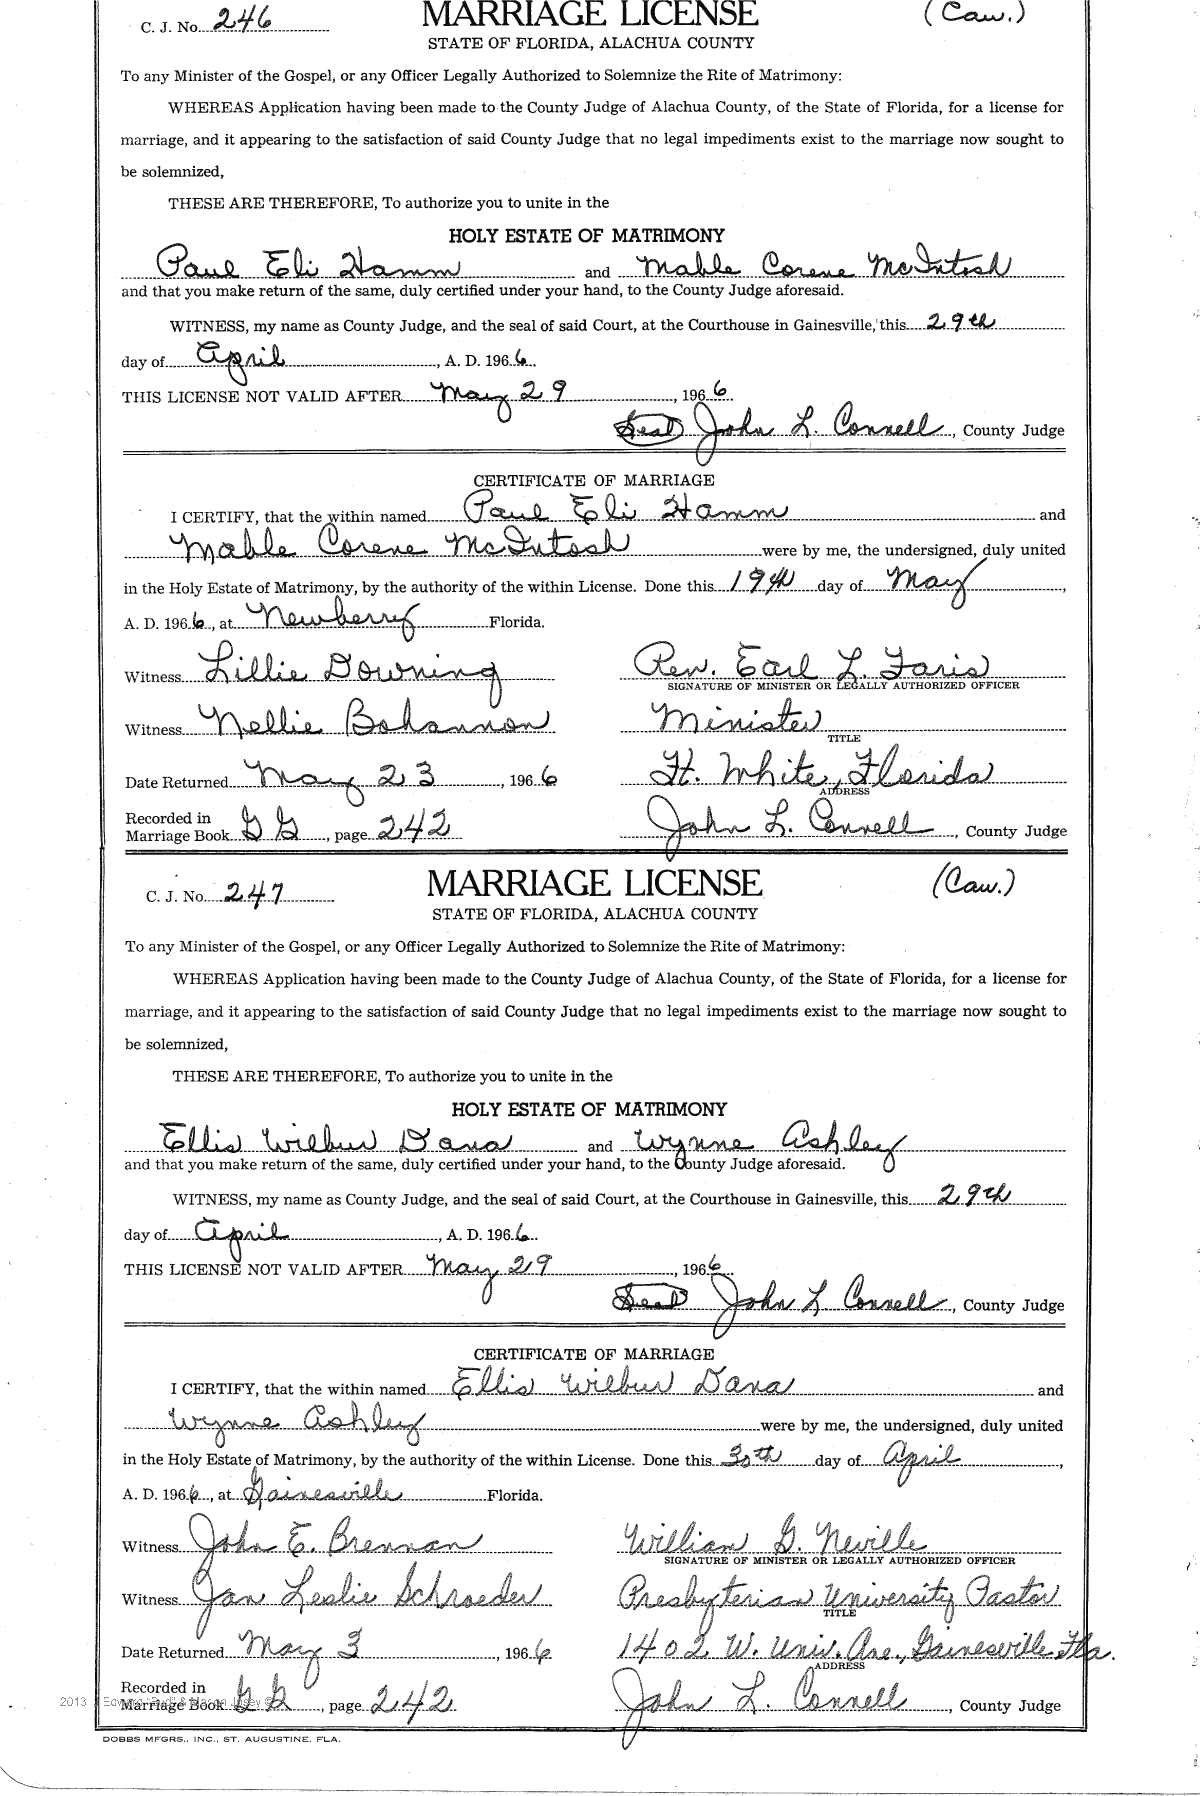 C. J. No. 246 MARRIAGE LICENSE (Caw.)
STATE OF FLORIDA, ALACHUA COUNTY
To any Minister of the Gospel, or any Officer Legally Authorized to Solemnize the Rite of Matrimony:
WHEREAS Application having been made to the County Judge of Alachua County, of the State of Florida, for a license for
marriage, and it appearing to the satisfaction of said County Judge that no legal impediments exist to the marriage now sought to
be solemnized,
THESE ARE THEREFORE, To authorize you to unite in the
HOLY ESTATE OF MATRIMONY
Paul Eli Hamm and Mable Corene McIntosh
and that you make return of the same, duly certified under your hand, to the County Judge aforesaid.
WITNESS, my name as County Judge, and the seal of said Court, at the Courthouse in Gainesville, this 29th
day of April, A. D. 1966.
THIS LICENSE NOT VALID AFTER May 29, 1966.
Seal John L. Connell, County Judge
CERTIFICATE OF MARRIAGE
I CERTIFY, that the within named Paul Eli Hamm and
Mable Corene McIntosh were by me, the undersigned, duly united
in the Holy Estate of Matrimony, by the authority of the within License. Done this 19th day of May,
A. D. 1966, at Newberry Florida.
Witness Lillie Downing Rev. Earl L. Faris
SIGNATURE OF MINISTER OR LEGALLY AUTHORIZED OFFICER
Witness Nellie Bohannon Minister
TITLE
Date Returned May 23, 1966 Ft. White, Florida
ADDRESS
Recorded in
Marriage Book GG, page 242 John L. Connell, County Judge
C. J. No. 247 MARRIAGE LICENSE (Caw.)
STATE OF FLORIDA, ALACHUA COUNTY
To any Minister of the Gospel, or any Officer Legally Authorized to Solemnize the Rite of Matrimony:
WHEREAS Application having been made to the County Judge of Alachua County, of the State of Florida, for a license for
marriage, and it appearing to the satisfaction of said County Judge that no legal impediments exist to the marriage now sought to
be solemnized,
THESE ARE THEREFORE, To authorize you to unite in the
HOLY ESTATE OF MATRIMONY
Ellis Wilbur Dana and Wynne Ashley
and that you make return of the same, duly certified under your hand, to the County Judge aforesaid.
WITNESS, my name as County Judge, and the seal of said Court, at the Courthouse in Gainesville, this 29th
day of April, A. D. 1966.
THIS LICENSE NOT VALID AFTER May 29, 1966.
Seal John L Connell, County Judge
CERTIFICATE OF MARRIAGE
I CERTIFY, that the within named Ellis Wilbur Dana and
Wynne Ashley were by me, the undersigned, duly united
in the Holy Estate of Matrimony, by the authority of the within License. Done this 30th day of April,
A. D. 1966, at Gainesville Florida.
Witness John E. Brennan William G. Neville
SIGNATURE OF MINISTER OR LEGALLY AUTHORIZED OFFICER
Witness Jan Leslie Schroeder Presbyterian University Pastor
TITLE
Date Returned May 3, 1966 1402 W. Univ. Ave., Gainesville Fla.
ADDRESS
Recorded in
Marriage Book GG, page 242 John L. Connell, County Judge
2013
DOBBS MFGRS., INC., ST. AUGUSTINE, FLA.